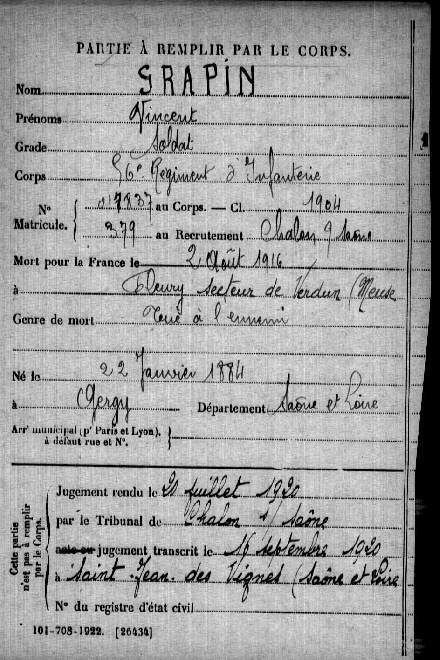 PARTIE À REMPLIR PAR LE CORPS.
Nom GRAPIN
Prénoms Vincent
Grade Soldat
Corps 56e Régiment d'Infanterie
N° 017837 au Corps. — Cl. 1904
Matricule. 379 au Recrutement Chalon s/ Saône
Mort pour la France le 2 Août 1916
à Fleury secteur de Verdun (Meuse
Genre de mort Tué à l'ennemi
Né le 22 Janvier 1884
à Gergy Département Saône et Loire
Arrt municipal (pr Paris et Lyon), à défaut rue et N°.
Cette partie n'est pas à remplir par le Corps.
Jugement rendu le 20 juillet 1920
par le Tribunal de Chalon s/ Saône
acte ou jugement transcrit le 16 septembre 1920
à Saint Jean. des Vignes (Saône et Loire
N° du registre d'état civil
101-708-1922. [26434]